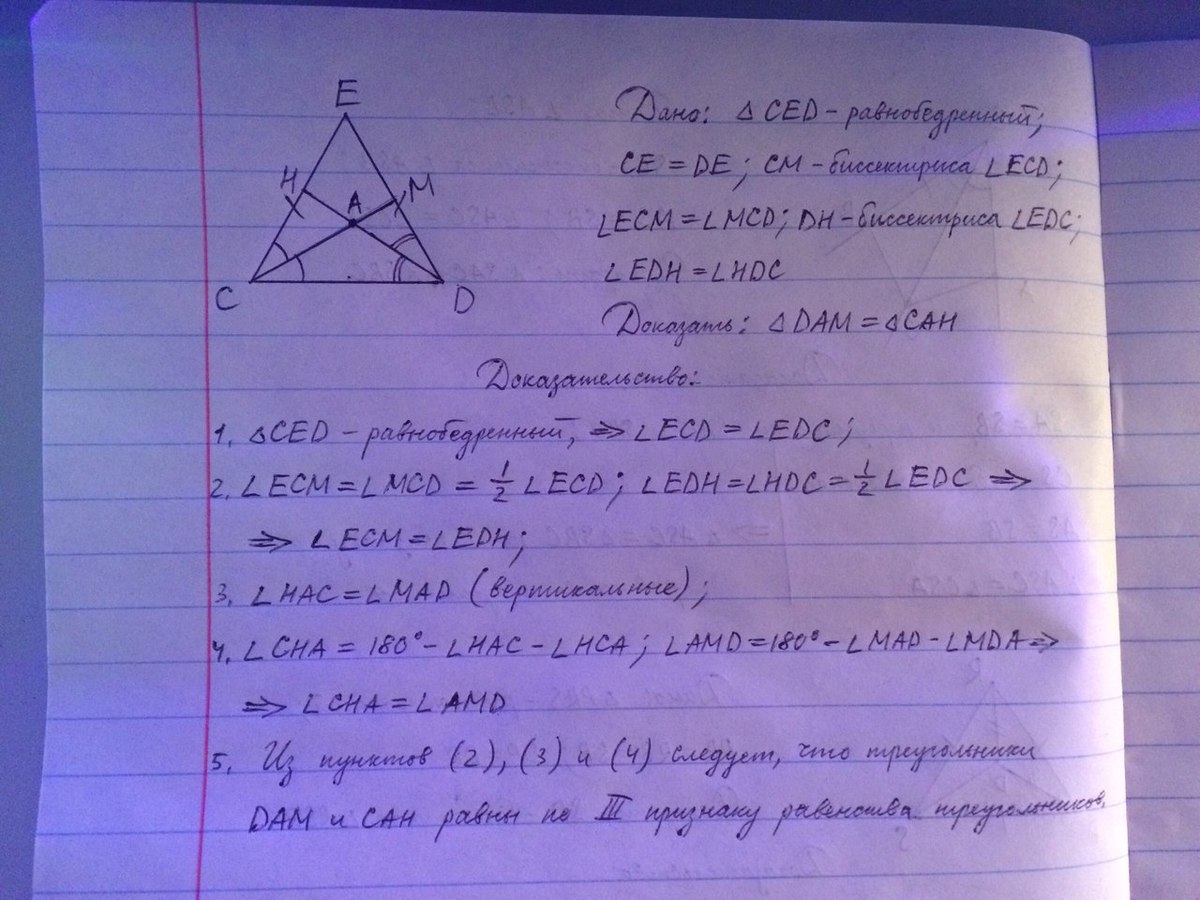 E
H
A
M
C
D
Дано: △ CED – равнобедренный;
CE = DE; CM – биссектриса ∠ECD;
∠ECM = ∠MCD; DH – биссектриса ∠EDC;
∠EDH = ∠HDC
Доказать: △DAM = △CAH
Доказательство:
1. △CED – равнобедренный, ⇒ ∠ECD = ∠EDC;
2. ∠ECM = ∠MCD = 1/2 ∠ECD; ∠EDH = ∠HDC = 1/2 ∠EDC ⇒
⇒ ∠ECM = ∠EDH;
3. ∠HAC = ∠MAD (вертикальные);
4. ∠CHA = 180° – ∠HAC – ∠HCA; ∠AMD = 180° – ∠MAD – ∠MDA ⇒
⇒ ∠CHA = ∠AMD
5. Из пунктов (2), (3) и (4) следует, что треугольники
DAM и CAH равны по III признаку равенства треугольников.